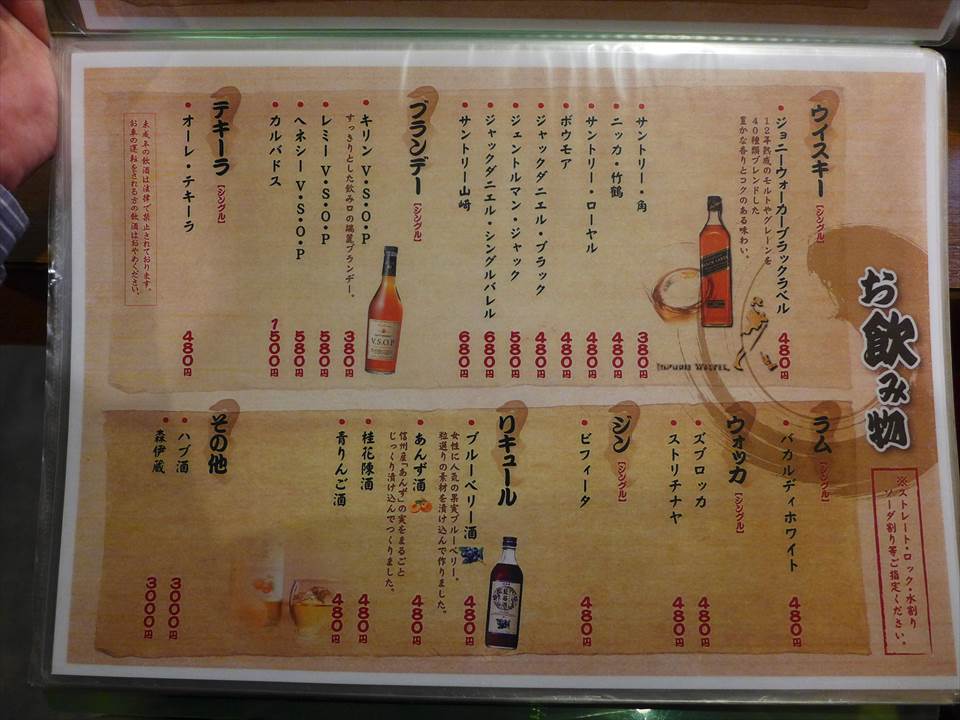 お飲み物
※ストレート・ロック・水割り
ソーダ割り等ご指定ください。
ウイスキー [シングル]
・ジョニーウォーカーブラックラベル 480円
12年熟成のモルトやグレーンを
40種類ブレンドした
豊かな香りとコクのある味わい。
・サントリー・角 380円
・ニッカ・竹鶴 480円
・サントリー・ローヤル 480円
・ボウモア 480円
・ジャックダニエル・ブラック 480円
・ジェントルマン・ジャック 580円
・ジャックダニエル・シングルバレル 680円
・サントリー山崎 680円
ブランデー [シングル]
・キリンV・S・O・P 380円
すっきりとした飲み口の端麗ブランデー。
・レミーV・S・O・P 580円
・ヘネシーV・S・O・P 580円
・カルバドス 1500円
テキーラ [シングル]
・オーレ・テキーラ 480円
未成年の飲酒は法律で禁止されております。
お車の運転をされる方の飲酒はおやめください。
V.S.O.P
JOHNNIE WALKER
ラム [シングル]
・バカルディホワイト 480円
ウォッカ [シングル]
・ズブロッカ 480円
・ストリチナヤ 480円
ジン [シングル]
・ビフィータ 480円
リキュール
・ブルーベリー酒 480円
女性に人気の果実ブルーベリー。
粒選りの素材を漬け込んで作りました。
・あんず酒 480円
信州産「あんず」の実をまるごと
じっくり漬け込んでつくりました。
・桂花陳酒 480円
・青りんご酒 480円
その他
・ハブ酒 3000円
・森伊蔵 3000円